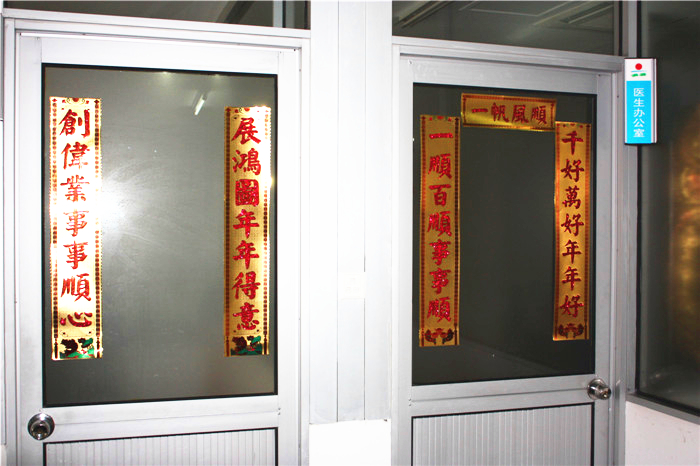 創偉業事事順心
展鴻圖年年得意
一帆風順
一順百順事事順
千好萬好年年好
医生办公室